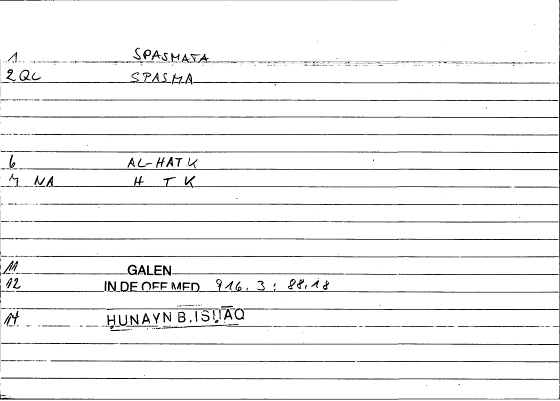 1 SPASMATA
2 QC SPASMA
6 AL-HATK
7 NA H T K
11 GALEN
12 IN DE OFF. MED. 916.3 : 88,18
14 ḤUNAYN B. ISḤĀQ